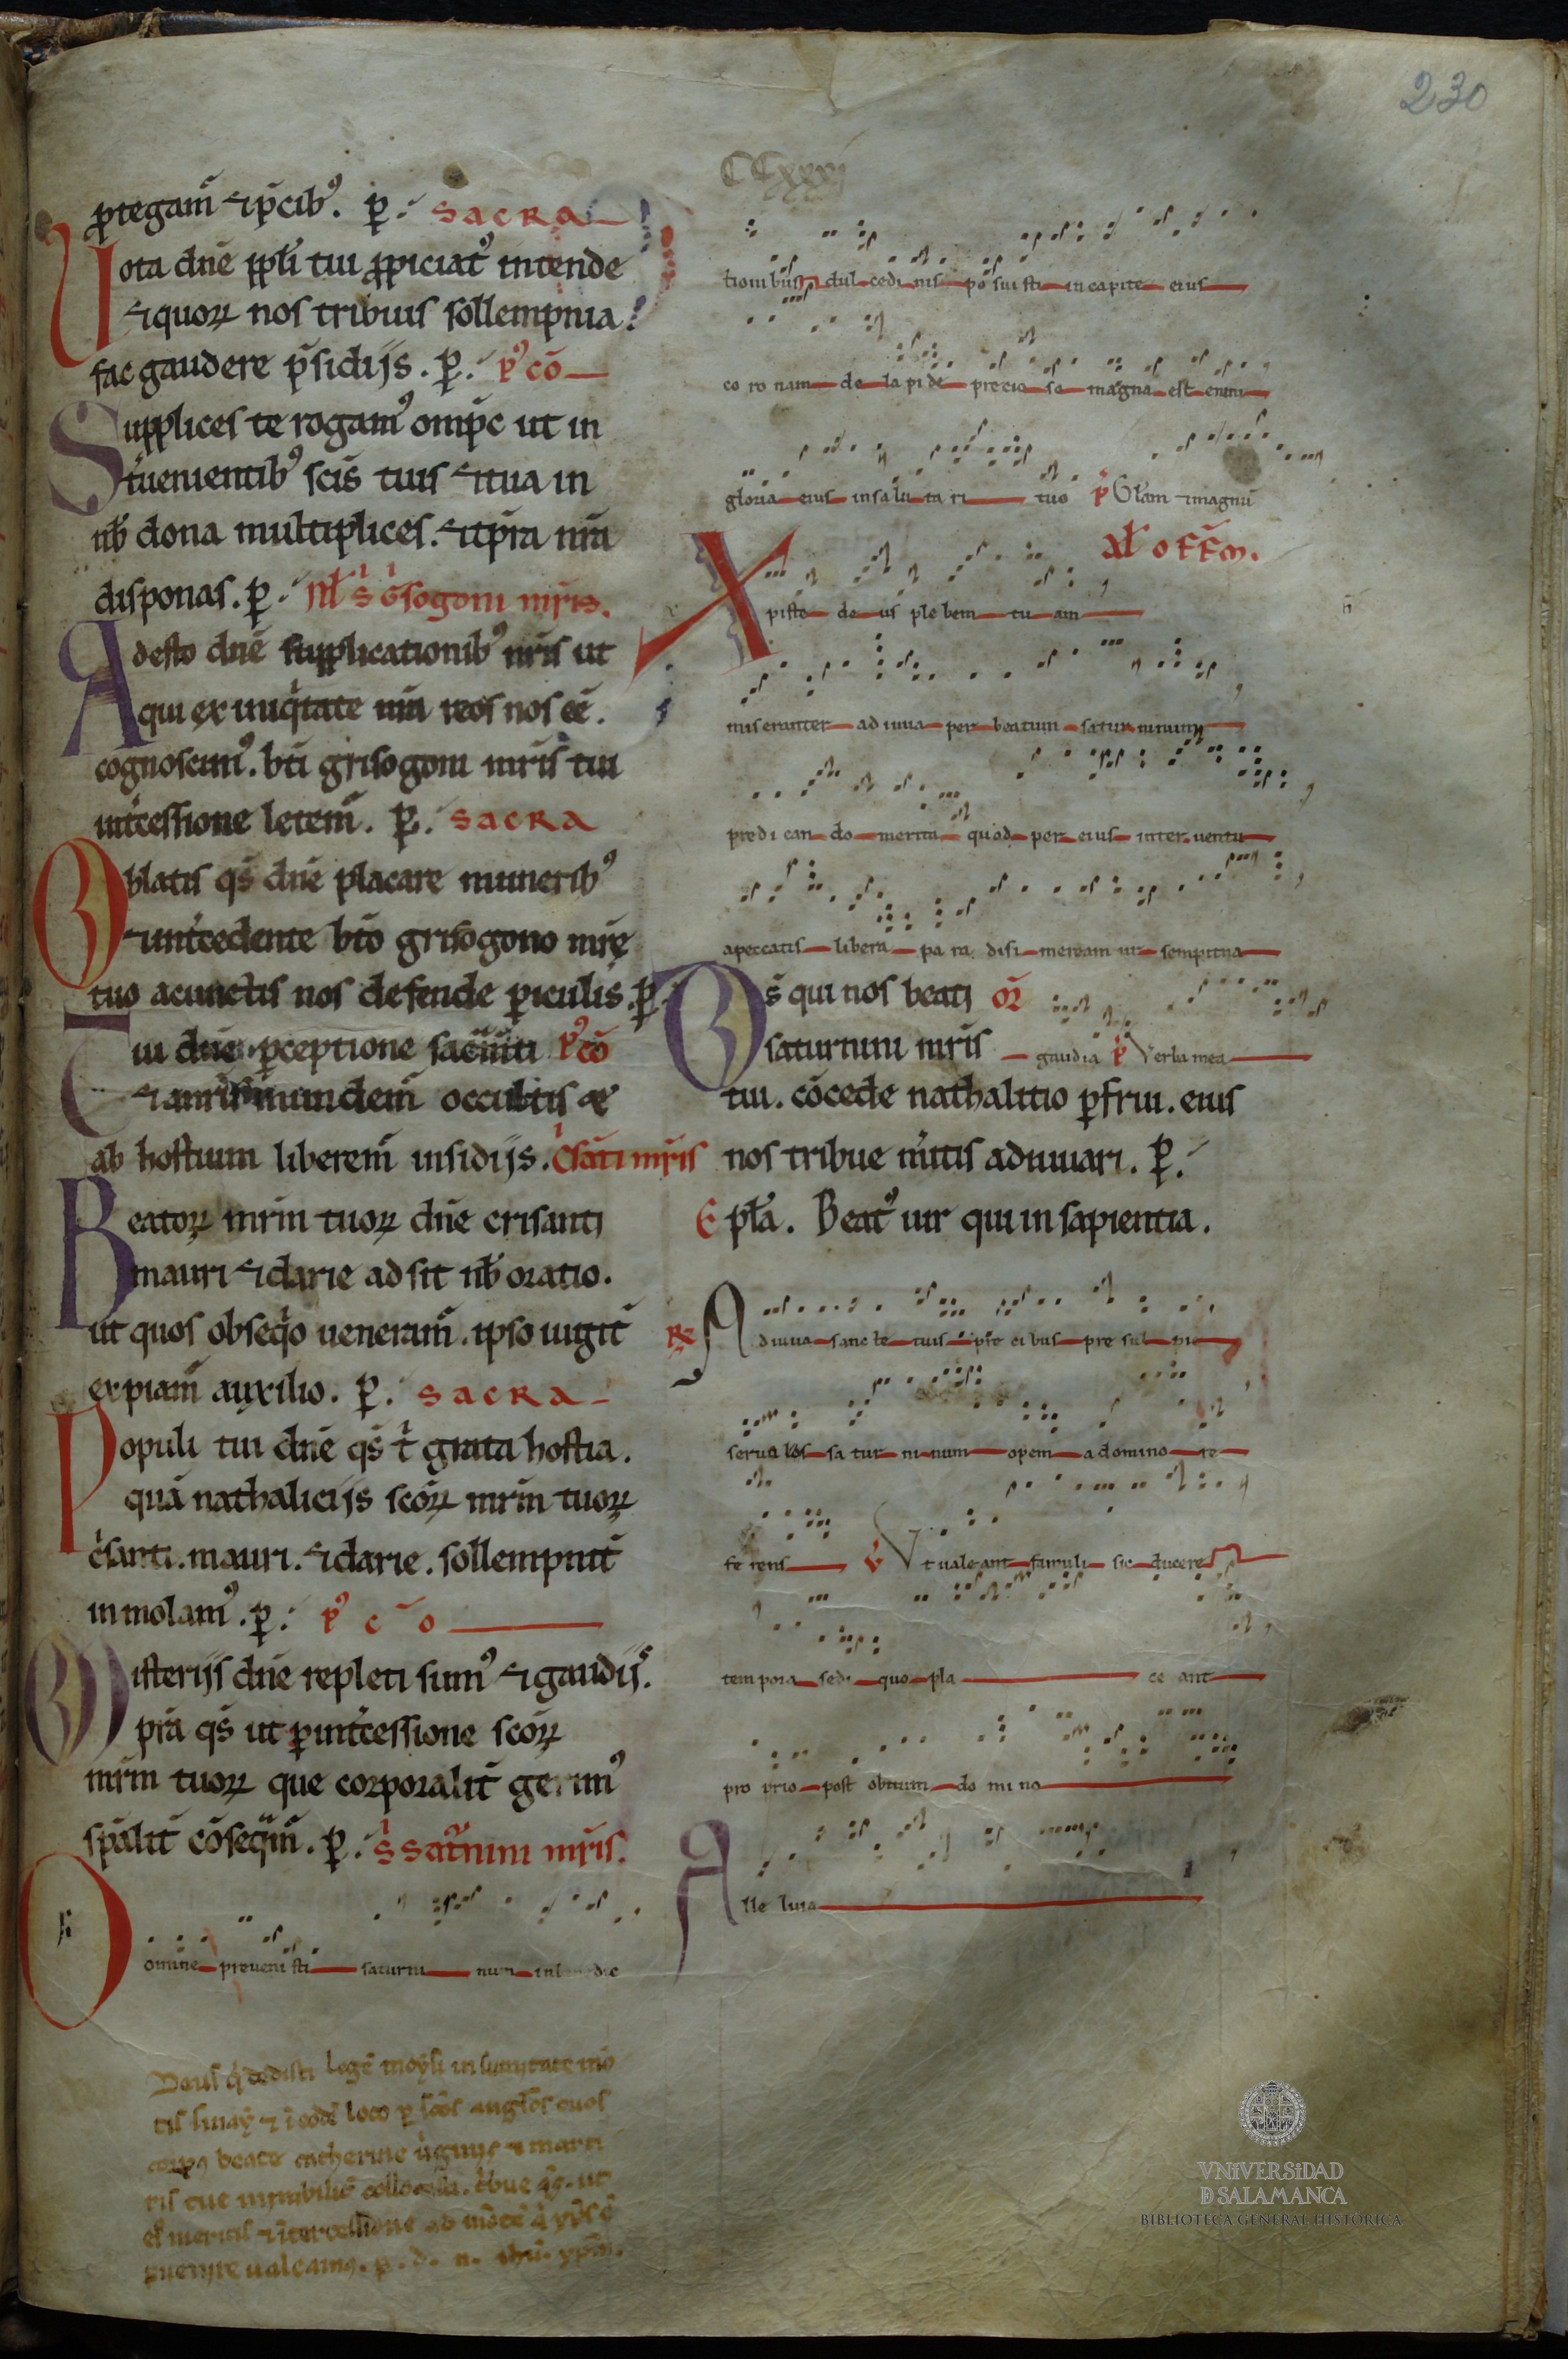 230
CCxxxj
ꝓtegam̄ ⁊ p̄cib᾿. ꝑ. SACRA
Vota dn̄e ppl̄i tui ꝓpiciat᾿ intende
⁊ quoꝝ nos tribuis sollempnia
fac gaudere p̄sidijs. ꝑ. p᾿ cō
Supplices te rogam᾿ omīps ut in
t̄uenientib᾿ scīs tuis ⁊ tua in
nb̄ dona multiplices. ⁊ tp̄ra nrā
disponas. ꝑ. Nł S G̓sogoni mr̄is.
Adesto dn̄e supplicationib᾿ nr̄is ut
qui ex iniq̓tate nrā reos nos ēē.
cognoscim᾿. bt̄i grisogoni mr̄is tui
int̄cessione letem̄. ꝑ. SACRA
Oblatis qs̄ dn̄e placare munerib᾿
⁊ int̄cedente btō grisogono mr̄e
tuo acunctis nos defende ꝑiculis. ꝑ.
Tui dn̄e ꝑceptione sacm̄ti p᾿ cō
mundem̄ occultis ⁊
ab hostium liberem̄ insidijs. C̓santi mr̄is
Beatoꝝ mr̄m tuoꝝ dn̄e crisanti
mauri ⁊ darie adsit nb̄ oratio.
ut quos obseq̓o ueneram̄. ipso iugit̄
expiam̄ auxilio. ꝑ. SACRA
Populi tui dn̄e qs̄ t̓ grata hostia.
quā nathalicijs scōꝝ mr̄m tuoꝝ
c̓santi. mauri. ⁊ darie. sollempnit̄
inmolam᾿. ꝑ. p᾿ c ō
Misterijs dn̄e repleti sum᾿ ⁊ gaudijs.
pr̄a qs̄ ut ꝑ int̄cessione scōꝝ
mr̄m tuoꝝ que corporalit̄ gerim᾿
sp̄alit̄ cōseq̄m̄. ꝑ. S Sat̄nini mr̄is.
Domine preueni sti saturni num in benedic
Deus q̓ dedisti legē moysi in sumitate mō
tis sinay ⁊ ī eodē loco ꝑ scōs angłos tuos
corpus beate catherine ūginis ⁊ marti
ris tue mirabilit̄ collocasti. t̓bue qs. ut
ei᾿ meritis ⁊ ītercessione ad mōtē q̓ xp̄s ē
puenire ualeamus. ꝑ. d. n. ihū. xpm̄.
tioni bus dul cedi nis po sui sti in capite eius
co ro nam de la pi de precio so magna est enim
gloria eius in sa lu ta ri tuo p̓ Glām ⁊ magnū
Aɫ OFFM.
Xpiste de us ple bem tu am
miseranter ad iuua per beatum satur ninum
predi can do merita quod per eius inter uentu
apeccatis libera pa ra disi meream ur sempit̄na
gaudia p̓ Verba mea
Ds̄ qui nos beati OR̄
saturnini mr̄is
tui. cōcede nathalitio ꝑfrui. eius
nos tribue m̄itis adiuuari. ꝑ.
Epła. Beat᾿ uir qui in sapientia.
R̷ Adiuua sanc te tuis pre ci bus pre sul pie
seruulos sa tur ni num opem a domino re
fe rens V̷ Ut uale ant famuli sic ducere
tem pora sedi quo pla ce ant
pro prio post obitum do mi no
Alle luia
VNiVERSiDAD
D SALAMANCA
BIBLIOTECA GENERAL HISTÓRICA